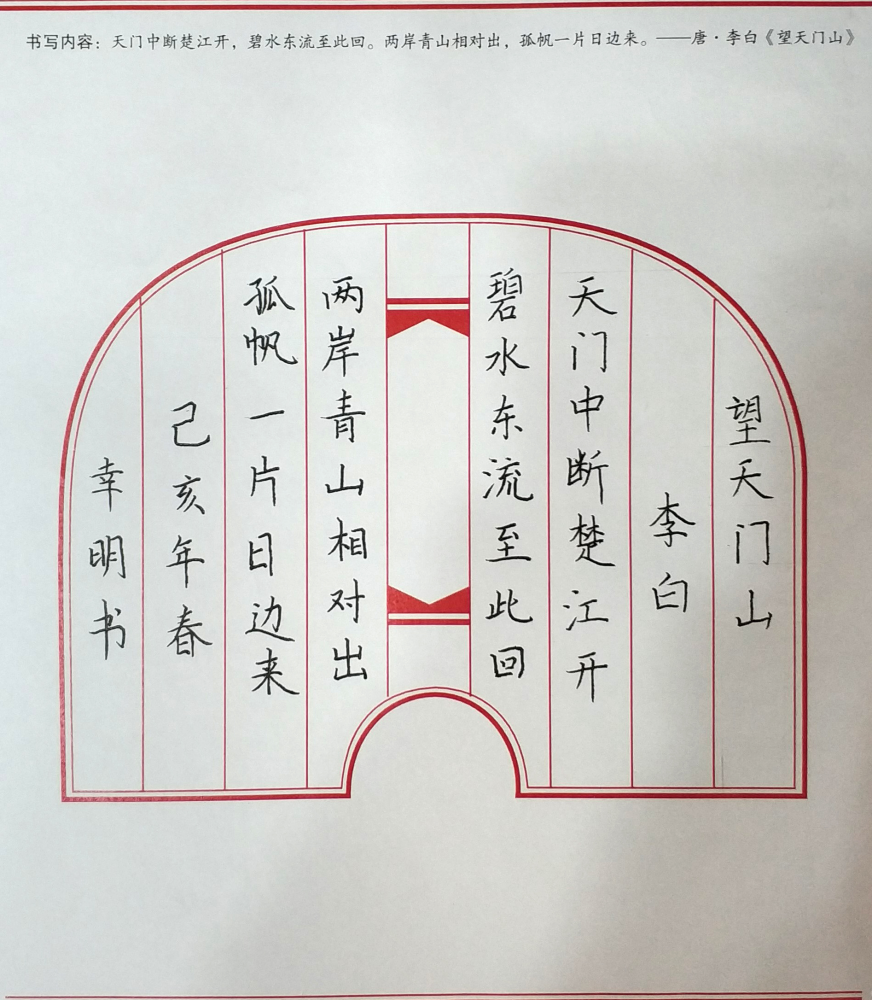 书写内容：天门中断楚江开，碧水东流至此回。两岸青山相对出，孤帆一片日边来。——唐·李白《望天门山》
望天门山
李白
天门中断楚江开
碧水东流至此回
两岸青山相对出
孤帆一片日边来
己亥年春
幸明书